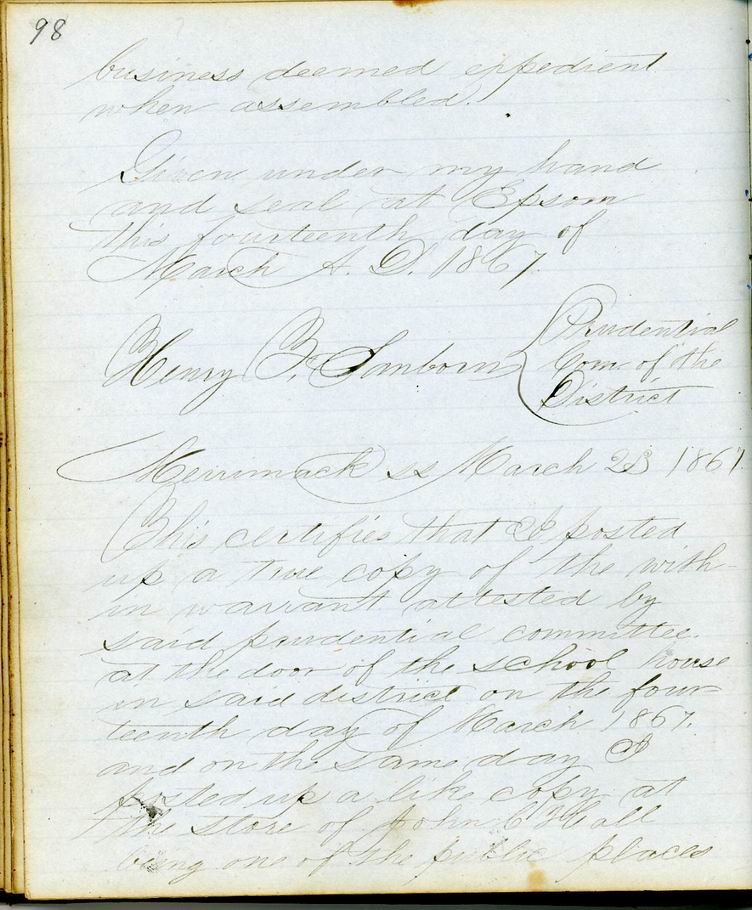 98
business deemed expedient
when assembled.
Given under my hand
and seal at Epsom
this fourteenth day of
March A. D. 1867
Henry F. Sanborn { Prudential
Com. of the
District
Merrimack ss March 23 1867
This certifies that I posted
up a true copy of the with-
in warrant attested by
said prudential committee
at the door of the school house
in said district on the four-
teenth day of March 1867.
and on the same day I
posted up a like copy at
the store of John C Hall
being one of the public places